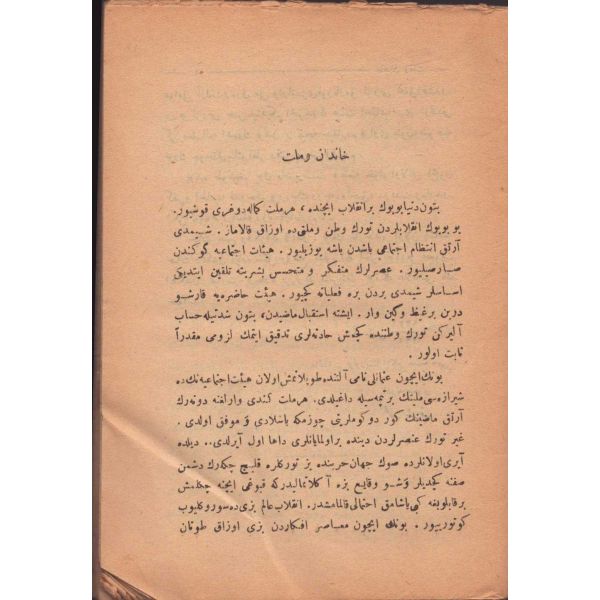 خاندان وملت
بتون دنیا بویوك بر انقلاب ایچنده ، هر ملت كماله دوغری قوشیور.
بو بویوك انقلابلردن تورك وطن وملتی ده اوزاق قالاماز . شیمدی
آرتق انتظام اجتماعی باشدن باشه بوزیلیور . هیئات اجتماعیه كوكندن
صارصیلیور . عصرلرك متفكر و متحسس بشریته تلقین ایتدیكی
اساسلر شیمدی بردن بره فعلیاته كچیور . هیئت حاضره یه قارشو
درین بر غیظ وكین وار . ایشته استقبال ماضیدن، بتون شدتیله حساب
آلیركن تورك وطننده كچمش حادثه لری تدقیق ایتمك لزومی مقدرآ
ثابت اولور .
بونك ایچون عثمانلی نامی آلتنده طوپلانمش اولان هیئت اجتماعیه نك ده
شیرازه سی ملیتك بر تپمه سیله داغیلدی. هر ملت كندی وارلغنه دونه رك
آرتق ماضینك كور دوكوملریتی چوزمكه باشلادی و موفق اولدی .
غیر تورك عنصرلردن دیننده بر اولمایانلری داها اول آیرلدی.. دیلده
آیری اولانلرده صوك جهان حربنده بز توركلره قلیچ چكه رك دشمن
صفنه كچدیلر وشو وقایع بزه آكلاتمالیدركه قبوغی ایچنه چكلمش
بر قابلوبغه كبی یاشامق احتمالی قالمامشدر. انقلاب عالم بزی ده سوروكلیوب
كوتوریور . بونك ایچون معاصر افكاردن بزی اوزاق طوتان